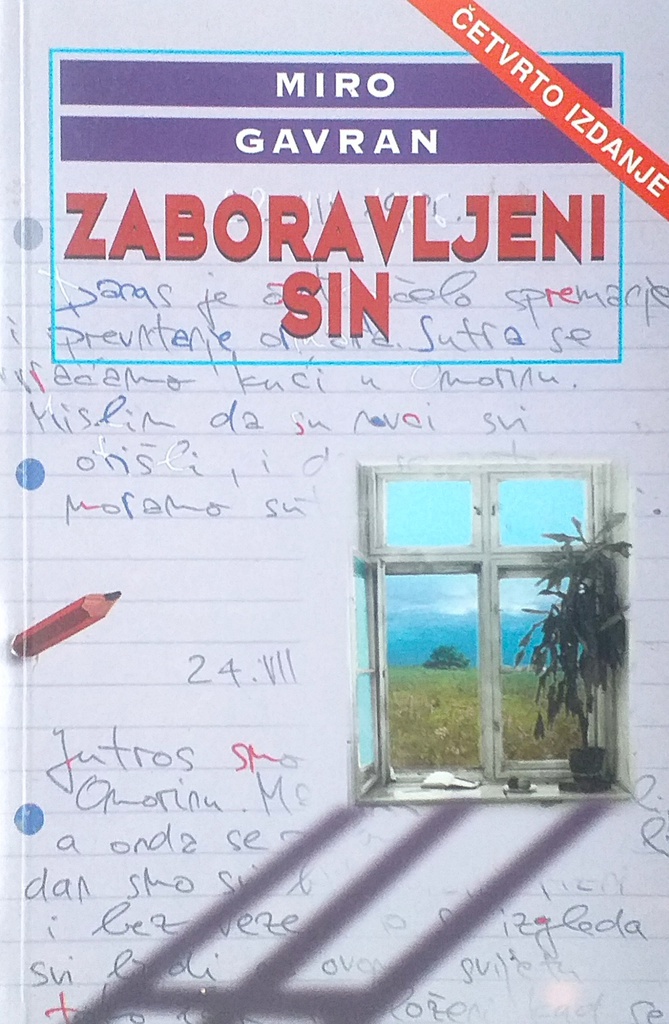 ČETVRTO IZDANJE
MIRO
GAVRAN
ZABORAVLJENI
SIN
Danas je spremanje
i prevrtanje Sutra se
vraćamo kući u Omorinu.
Mislim da su novci svi
otišli, i
moramo
24. VII
Jutros smo
Omorinu.
a onda se
dan smo svi
i bez veze izgleda
svi ljudi ovom svijetu
se